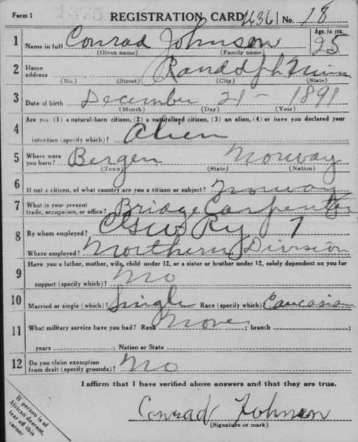 Form 1 REGISTRATION CARD 4361 No. 18
1 Name in full Conrad Johnson Age, in yrs. 25
(Given name) (Family name)
2 Home address Randolph Minn
(No.) (Street) (City) (State)
3 Date of birth December 21 - 1891
(Month) (Day) (Year)
4 Are you (1) a natural-born citizen, (2) a naturalized citizen, (3) an alien, (4) or have you declared your
intention (specify which)? Alien
5 Where were you born? Bergen Norway
(Town) (State) (Nation)
6 If not a citizen, of what country are you a citizen or subject? Norway
7 What is your present trade, occupation, or office? Bridge Carpenter
8 By whom employed? CGWRy 7
Where employed? Northern Division
9 Have you a father, mother, wife, child under 12, or a sister or brother under 12, solely dependent on you for
support (specify which)? No
10 Married or single (which)? Single Race (specify which)? Caucasian
11 What military service have you had? Rank None ; branch
years ; Nation or State
12 Do you claim exemption from draft (specify grounds)? No
I affirm that I have verified above answers and that they are true.
Conrad Johnson
(Signature or mark)
If person is of African descent, tear off this corner.